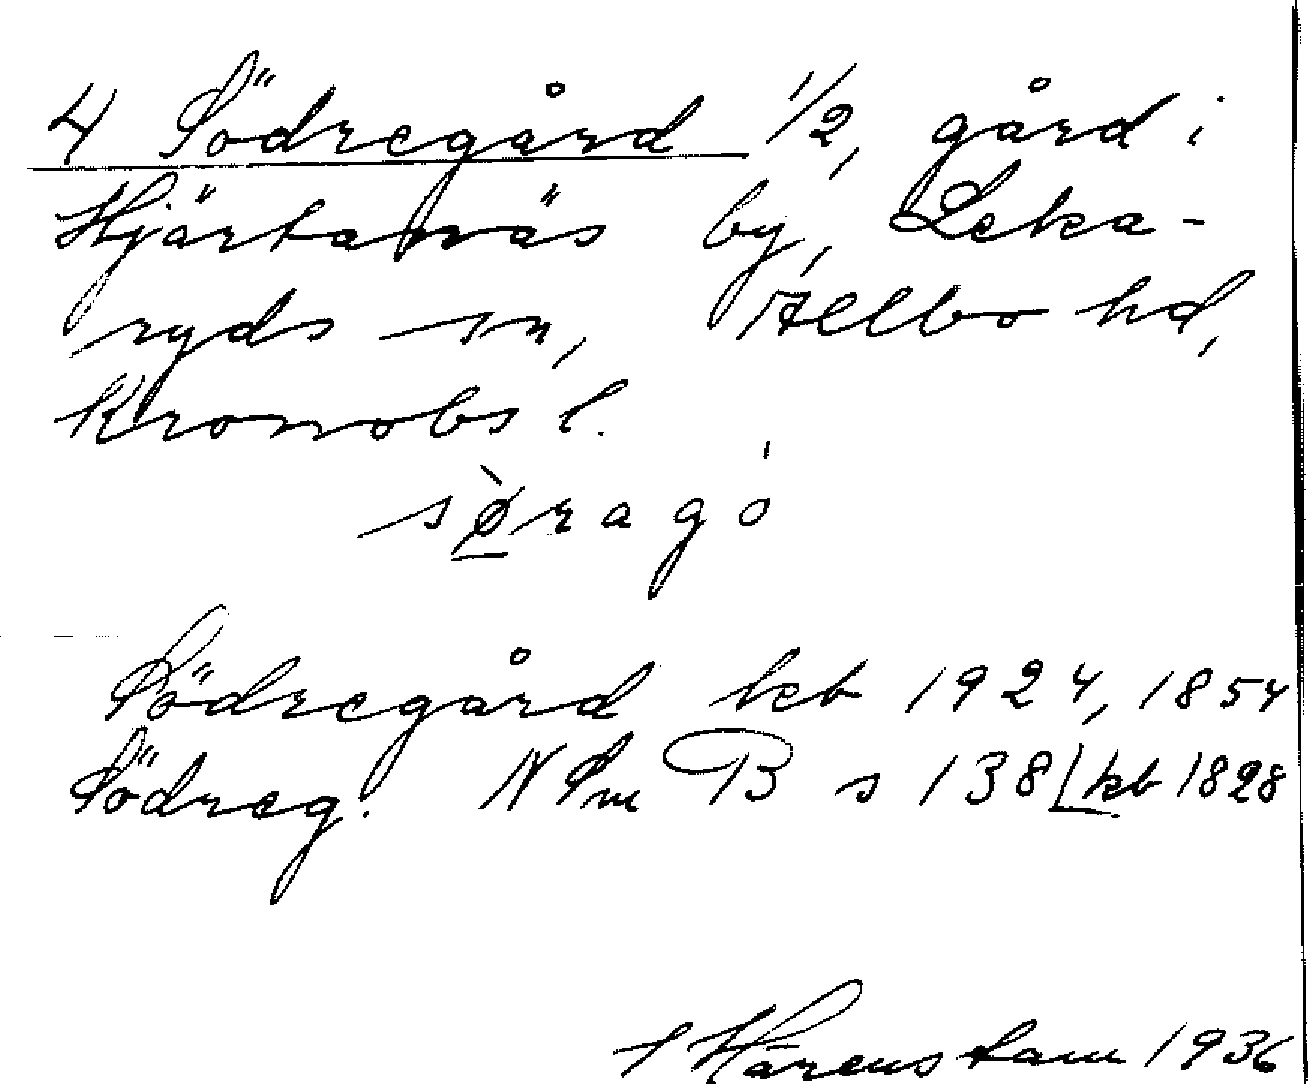 4 Södregård 1/2, gård i
Hjärtanäs by, Leka-
ryds sn, Allbo hd,
Kronobs l.
sø̀ragó
Södregård kb 1924, 1854
Södreg. N Sm B s 138 kb 1828
Härenstam 1936